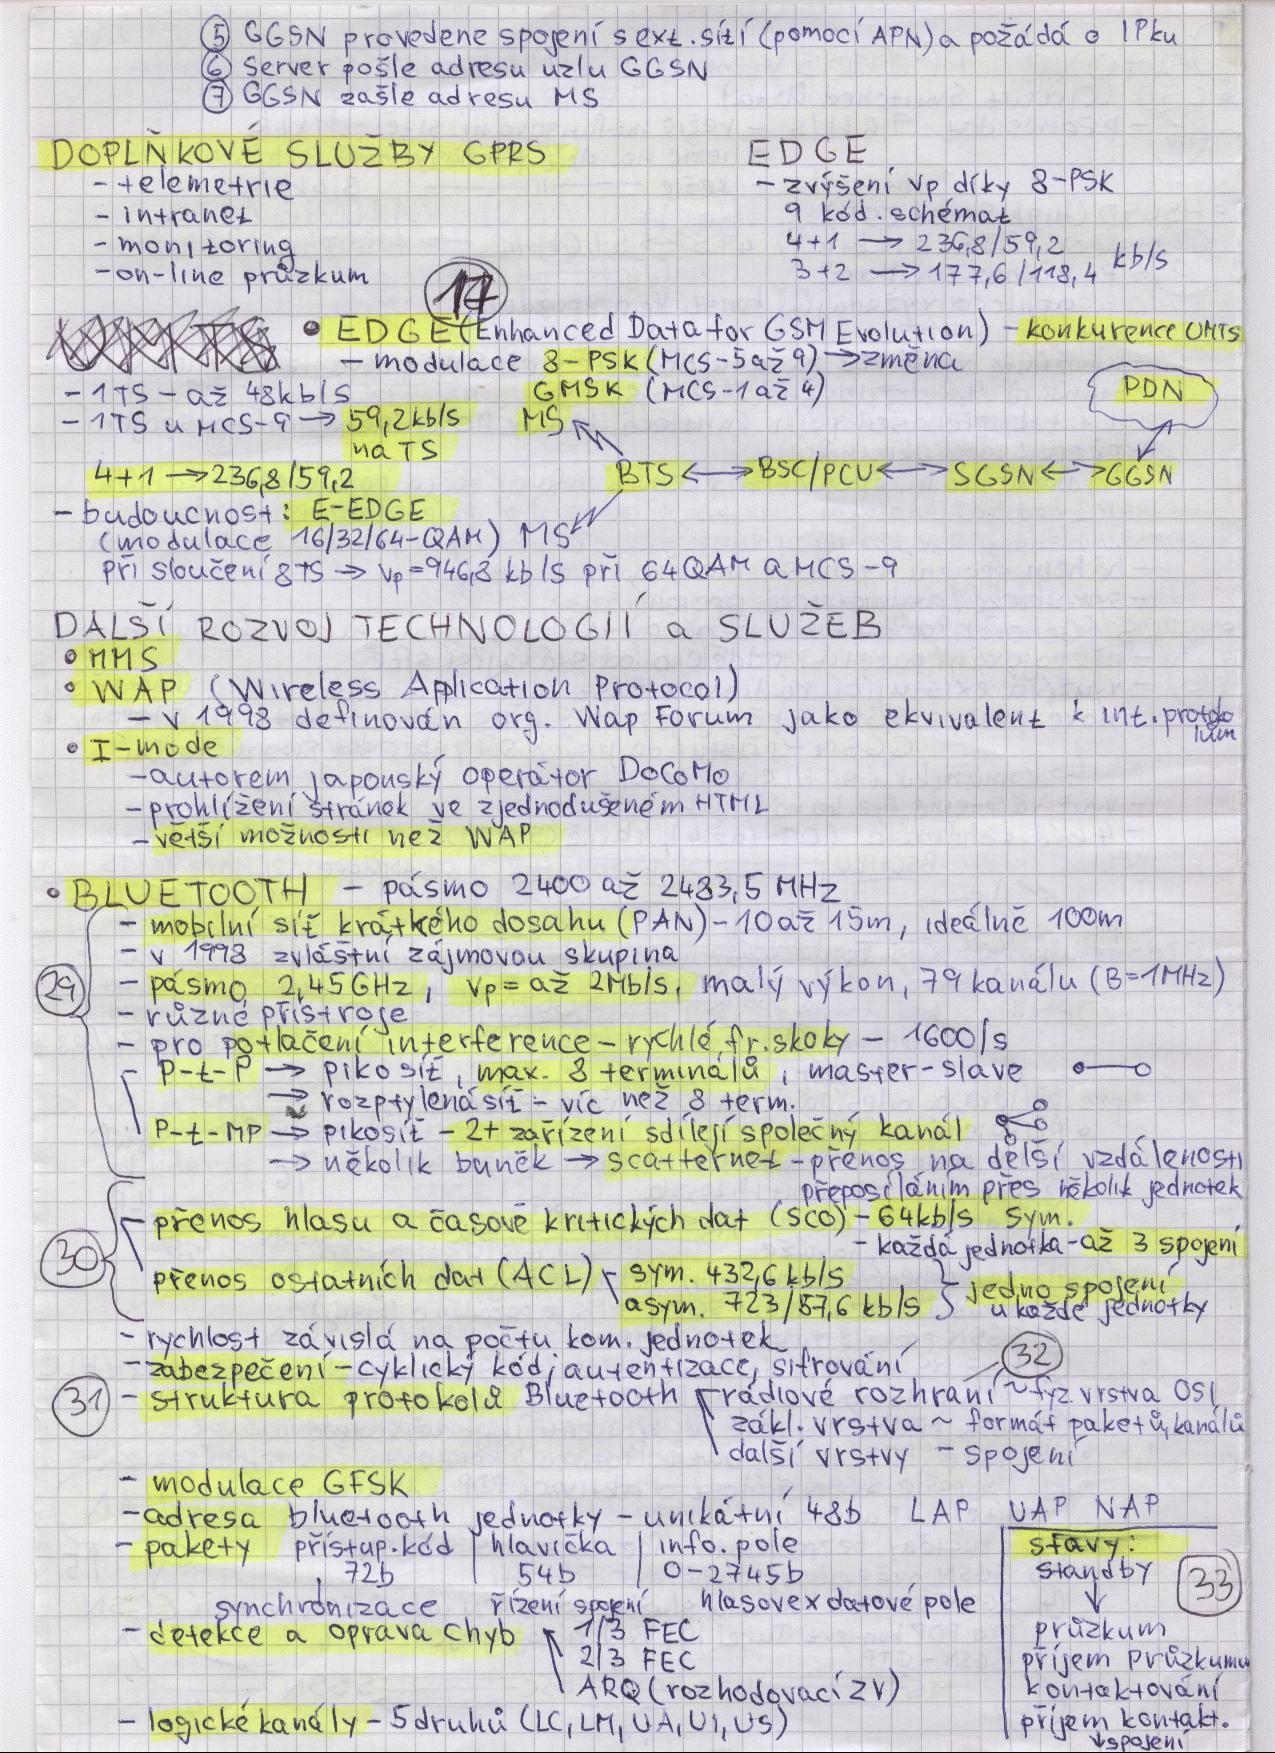 ⑤ GGSN provedene spojení s ext. sítí (pomocí APN) a požádá o IPku
⑥ Server pošle adresu uzlu GGSN
⑦ GGSN zašle adresu MS
DOPLŇKOVÉ SLUŽBY GPRS
- telemetrie
- intranet
- monitoring
- on-line průzkum
EDGE
- zvýšení vp díky 8-PSK
9 kód. schémat
4+1 → 236,8/59,2
3+2 → 177,6/118,4 kb/s
17
• EDGE (Enhanced Data for GSM Evolution) - konkurence UMTS
- modulace 8-PSK (MCS-5 až 9) → změna
GMSK (MCS-1 až 4)
- 1TS - až 48kb/s
- 1TS u MCS-9 → 59,2kb/s
na TS
4+1 → 236,8/59,2
- budoucnost: E-EDGE
(modulace 16/32/64-QAM)
při sloučení 8TS → vp = 946,8 kb/s při 64QAM a MCS-9
PDN
MS
BTS ↔ BSC/PCU ↔ SGSN ↔ GGSN
MS
DALŠÍ ROZVOJ TECHNOLOGIÍ a SLUŽEB
• MMS
• WAP (Wireless Application Protocol)
- v 1998 definován org. Wap Forum jako ekvivalent k int. protokolům
• I-mode
- autorem japonský operátor DoCoMo
- prohlížení stránek ve zjednodušeném HTML
- větší možnosti než WAP
• BLUETOOTH - pásmo 2400 až 2483,5 MHz
- mobilní síť krátkého dosahu (PAN) - 10 až 15m, ideálně 100m
- v 1998 zvláštní zájmovou skupina
29
- pásmo 2,45GHz, vp = až 2Mb/s, malý výkon, 79 kanálu (B=1MHz)
- různé přístroje
- pro potlačení interference - rychlé fr. skoky - 1600/s
- P-t-P → pikosíť, max. 8 terminálů, master-slave
→ rozptýlená síť - víc než 8 term.
P-t-MP → pikosíť - 2+ zařízení sdílejí společný kanál
→ několik buněk → scatternet - přenos na delší vzdálenosti
přeposíláním přes několik jednotek
30
přenos hlasu a časově kritických dat (SCO) - 64kb/s sym.
- každá jednotka - až 3 spojení
přenos ostatních dat (ACL) sym. 432,6 kb/s
asym. 723/57,6 kb/s
jedno spojení
u každé jednotky
- rychlost závislá na počtu kom. jednotek
- zabezpečení - cyklický kód, autentizace, šifrování
32
31
- struktura protokolů Bluetooth rádiové rozhraní ~ fyz. vrstva OSI
zákl. vrstva ~ formát paketů, kanálů
další vrstvy - spojení
- modulace GFSK
- adresa bluetooth jednotky - unikátní 48b LAP UAP NAP
- pakety přístup. kód | hlavička | info. pole
72b 54b 0-2745b
synchronizace řízení spojení hlasové x datové pole
- detekce a oprava chyb 1/3 FEC
2/3 FEC
ARQ (rozhodovací ZV)
- logické kanály - 5 druhů (LC, LM, UA, UI, US)
stavy:
standby
33
↓
průzkum
příjem průzkumu
kontaktování
příjem kontakt.
↓ spojení